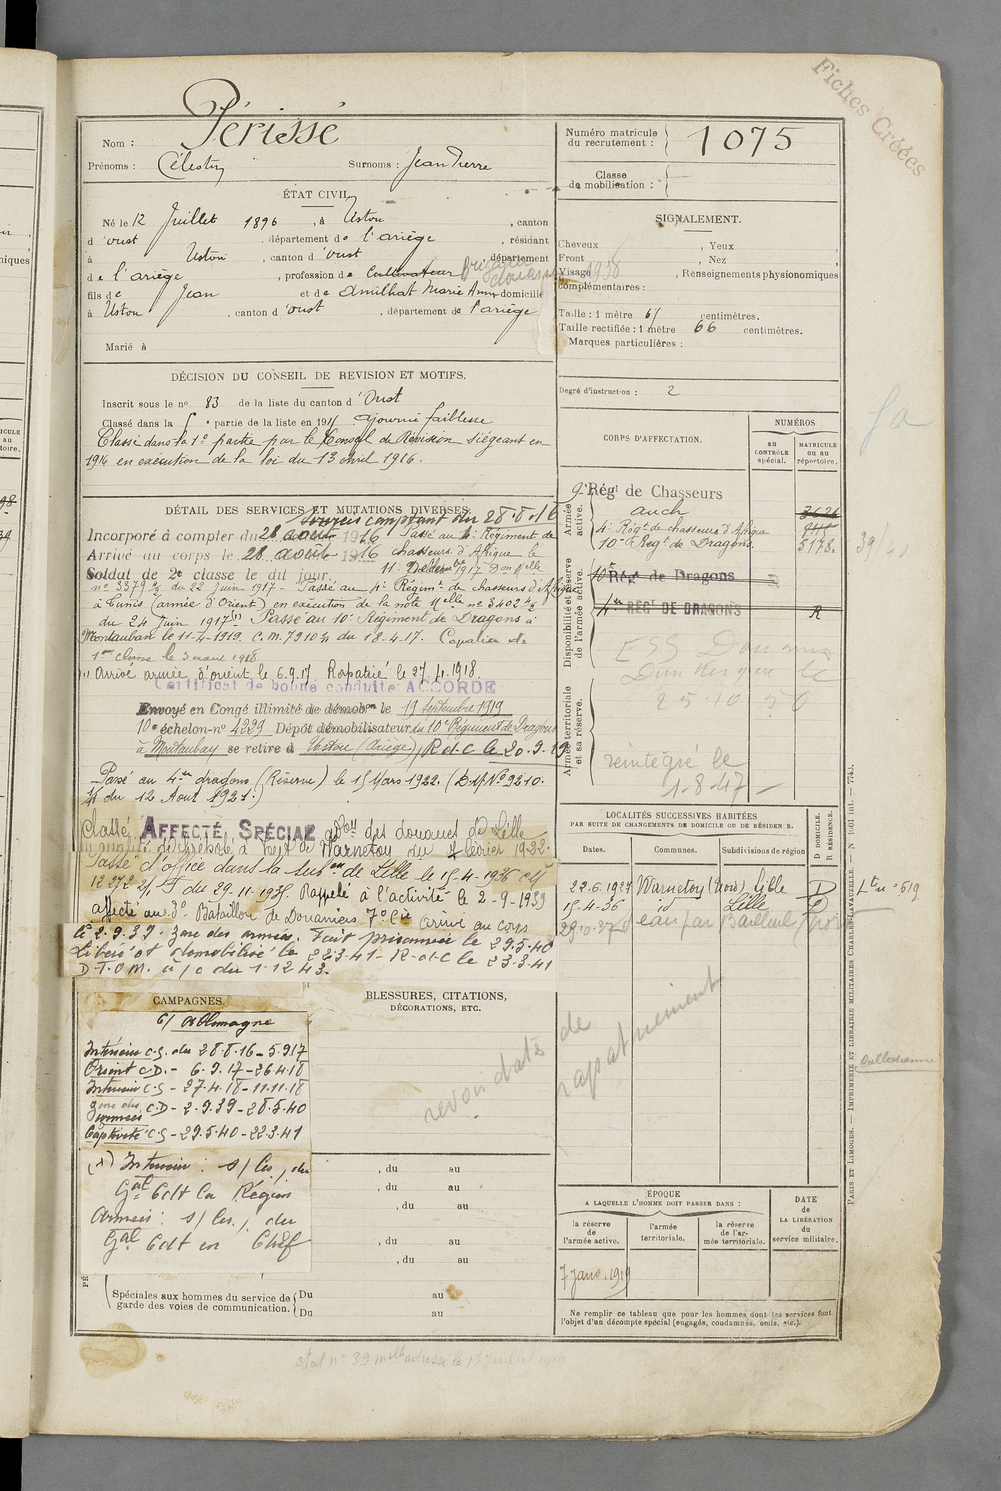 Fiches Créées
Nom : Périssé
Prénoms : Célestin Surnoms : Jean Pierre
Numéro matricule du recrutement : 1075
Classe de mobilisation :
ÉTAT CIVIL
Né le 12 Juillet 1896, à Ustou, canton
d'Oust, département de l'ariège, résidant
à Ustou, canton d'Oust, département
de l'ariège, profession de Cultivateur
fils de Jean et de Amilhat Marie Anne domicilié
à Ustou, canton d'Oust, département de l'ariège
Marié à
SIGNALEMENT.
Cheveux , Yeux ,
Front , Nez ,
Visage 1938, Renseignements physionomiques
complémentaires :
Taille : 1 mètre 65 centimètres.
Taille rectifiée : 1 mètre 66 centimètres.
Marques particulières :
Degré d'instruction : 2
DÉCISION DU CONSEIL DE REVISION ET MOTIFS.
Inscrit sous le no 83 de la liste du canton d'Oust
Classé dans la 5e partie de la liste en 1915 Ajourné faiblesse
Classé dans la 1e partie par le Conseil de Révision siégeant en
1916 en exécution de la loi du 13 avril 1916.
DÉTAIL DES SERVICES ET MUTATIONS DIVERSES.
Services comptant du 28.8.16
Incorporé à compter du 28 août 1916 Passé au 4e Régiment de
Arrivé au corps le 28 août 1916 chasseurs d'Afrique le
Soldat de 2e classe le dit jour. 11 Décembre 1917 Don Melle
no 3379 2/3 du 22 Juin 1917 - Passé au 4e Régimt de chasseurs d'Afrique
à Tunis (armée d'Orient) en exécution de la note Melle no 3402 4/2
du 24 Juin 1917 (1) Passé au 10e Régiment de Dragons à
Montauban le 11-4-1919. C.M. 7910 du 18.4.17. Cavalier de
1ere classe le 3 1918
(1) Arrivé armée d'orient le 6.9.17. Rapatrié le 27.4.1918.
Certificat de bonne conduite ACCORDÉ
Envoyé en Congé illimité de démobon le 19 Septembre 1919
10e échelon no 4229 Dépôt démobilisateur du 10e Régiment de Dragons
à Montauban se retire à Ustou (Ariège) R.d.C le 20.9.19
Passé au 4me dragons (Réserve) le 15 Mars 1922. (D.M. No 9210.
du 12 Aout 1921.)
Classé AFFECTÉ SPÉCIAL des douanes de Lille
Warneton du février 1922.
Passé d'office dans la subon de Lille le 15-4-1936
12272 du 29.11.1935. Rappelé à l'activité le 2-9-1939
affecté au 3e Bataillon de Douaniers 7e Cie arrivé au corps
le 2.9.39. Zone des armées. Fait prisonnier le 29.5.40
Libéré et démobilisé le 22.3.41 - R.d.C le 23.3.41
D.T.O.M. à/c du 1.12.43.
CORPS D'AFFECTATION.
NUMÉROS
AU CONTRÔLE spécial.
MATRICULE OU AU répertoire.
Armée active.
9e Régt de Chasseurs
auch 3626
4e Régt de chasseurs d'Afrique
10e Régt de Dragons. 5178.
Disponibilité et réserve de l'armée active.
10e Régt de Dragons
4me RÉGt DE DRAGONS R
ESS Douanes
Dunkerque le
25-10-50
Armée territoriale et sa réserve.
reintégré le
1-8-47
LOCALITÉS SUCCESSIVES HABITÉES
PAR SUITE DE CHANGEMENTS DE DOMICILE OU DE RÉSIDENCE.
Dates. Communes. Subdivisions de région
D DOMICILE. R RÉSIDENCE.
22.6.1927 Warneton (Nord) Lille D
15-4-36 id Lille D
Bailleul
CAMPAGNES.
c/ Allemagne
Intérieur C.S. du 28.8.16 - 5.9.17
Orient C.D. - 6.9.17 - 26.4.18
Intérieur C.S - 27.4.18 - 11.11.18
Zone des armées C.D - 2.9.39 - 28.5.40
Captivité C.S - 29.5.40 - 22.3.41
Intérieur : s/ les , du
Gal Cdt la Région
Armées : s/ les , du
Gal Cdt en Chef
BLESSURES, CITATIONS,
DÉCORATIONS, ETC.
revoir date de rapatriement
, du au
, du au
, du au
, du au
, du au
Spéciales aux hommes du service de garde des voies de communication.
Du au
Du au
ÉPOQUE
A LAQUELLE L'HOMME DOIT PASSER DANS :
la réserve de l'armée active.
l'armée territoriale.
la réserve de l'armée territoriale.
DATE de LA LIBÉRATION du service militaire.
7 janv. 1919
Ne remplir ce tableau que pour les hommes dont les services font
l'objet d'un décompte spécial (engagés, condamnés, omis, etc.).
PARIS ET LIMOGES. — IMPRIMERIE ET LIBRAIRIE MILITAIRES CHARLES-LAVAUZELLE.
39/40